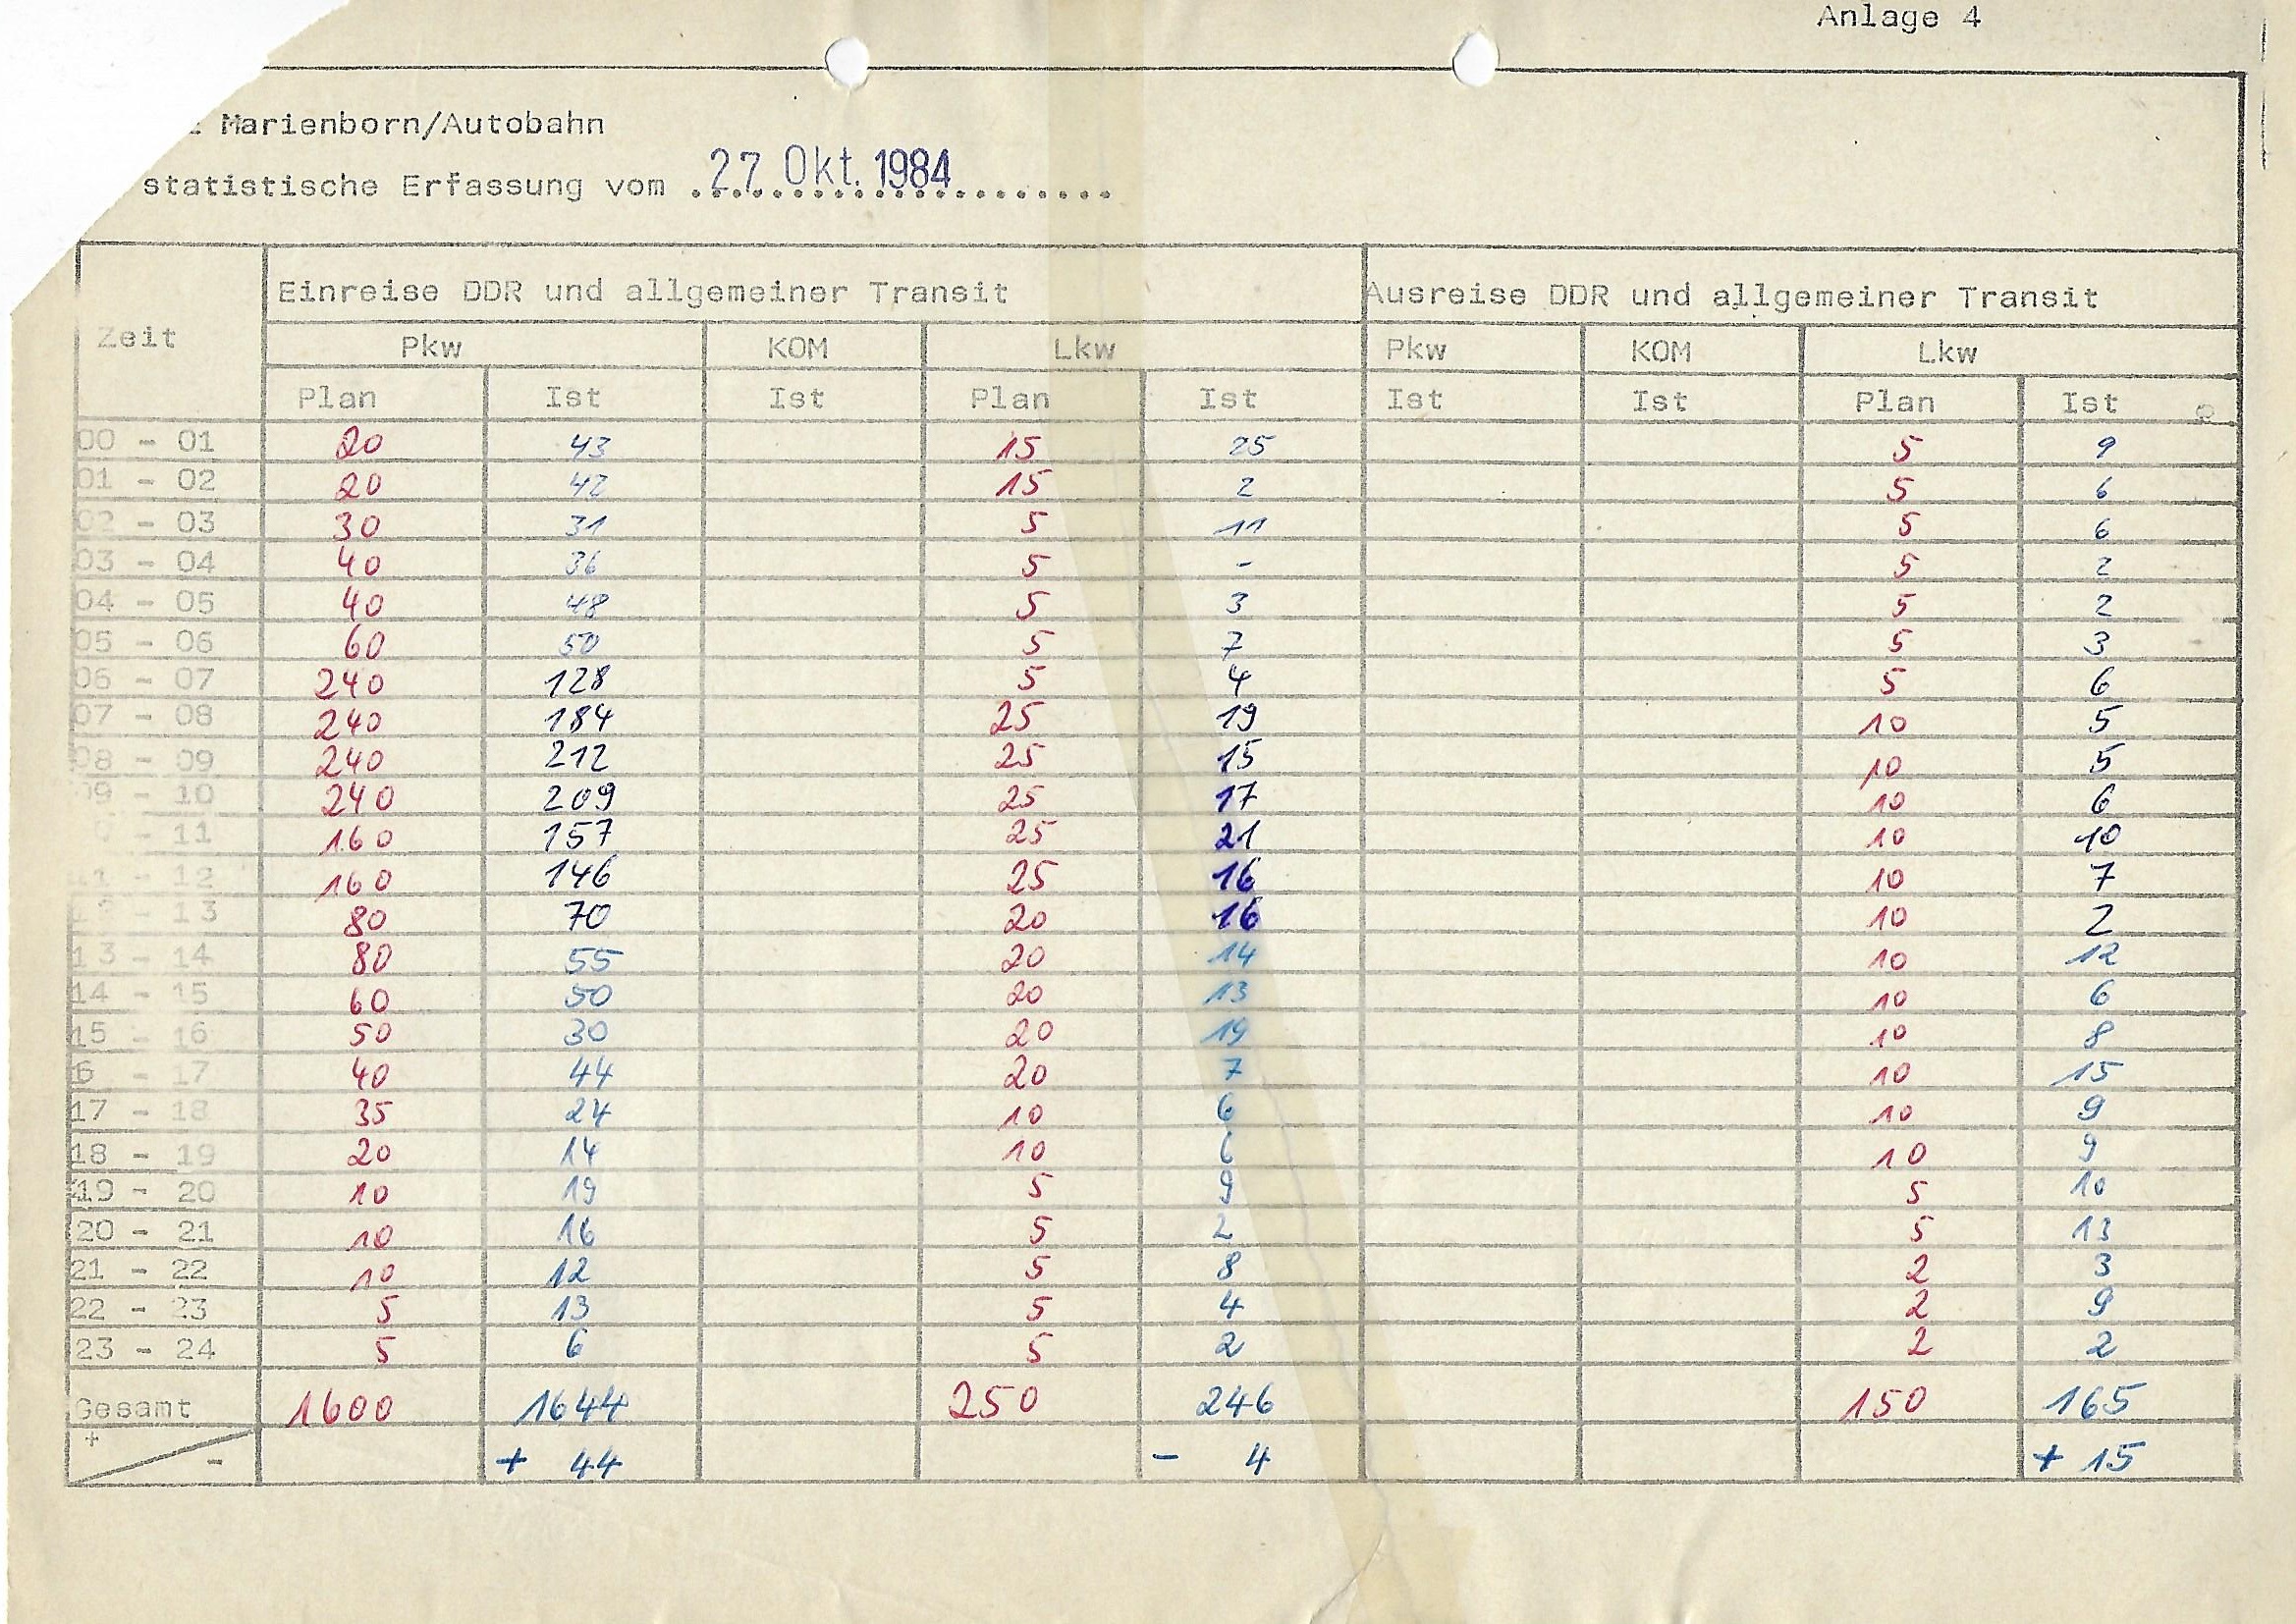 Anlage 4
Marienborn/Autobahn
statistische Erfassung vom 27. Okt. 1984
Zeit Einreise DDR und allgemeiner Transit Ausreise DDR und allgemeiner Transit
Pkw KOM Lkw Pkw KOM Lkw
Plan Ist Ist Plan Ist Ist Ist Plan Ist
00 - 01 20 43 15 25 5 9
01 - 02 20 42 15 2 5 6
02 - 03 30 31 5 11 5 6
03 - 04 40 36 5 - 5 2
04 - 05 40 48 5 3 5 2
05 - 06 60 50 5 7 5 3
06 - 07 240 128 5 4 5 6
07 - 08 240 184 25 19 10 5
08 - 09 240 212 25 15 10 5
09 - 10 240 209 25 17 10 6
- 11 160 157 25 21 10 10
11 - 12 160 146 25 16 10 7
12 - 13 80 70 20 16 10 2
13 - 14 80 55 20 14 10 12
14 - 15 60 50 20 13 10 6
15 - 16 50 30 20 19 10 8
6 - 17 40 44 20 7 10 15
17 - 18 35 24 10 6 10 9
18 - 19 20 14 10 6 10 9
19 - 20 10 19 5 9 5 10
20 - 21 10 16 5 2 5 13
21 - 22 10 12 5 8 2 3
22 - 23 5 13 5 4 2 9
23 - 24 5 6 5 2 2 2
Gesamt 1600 1644 250 246 150 165
+ - + 44 - 4 + 15